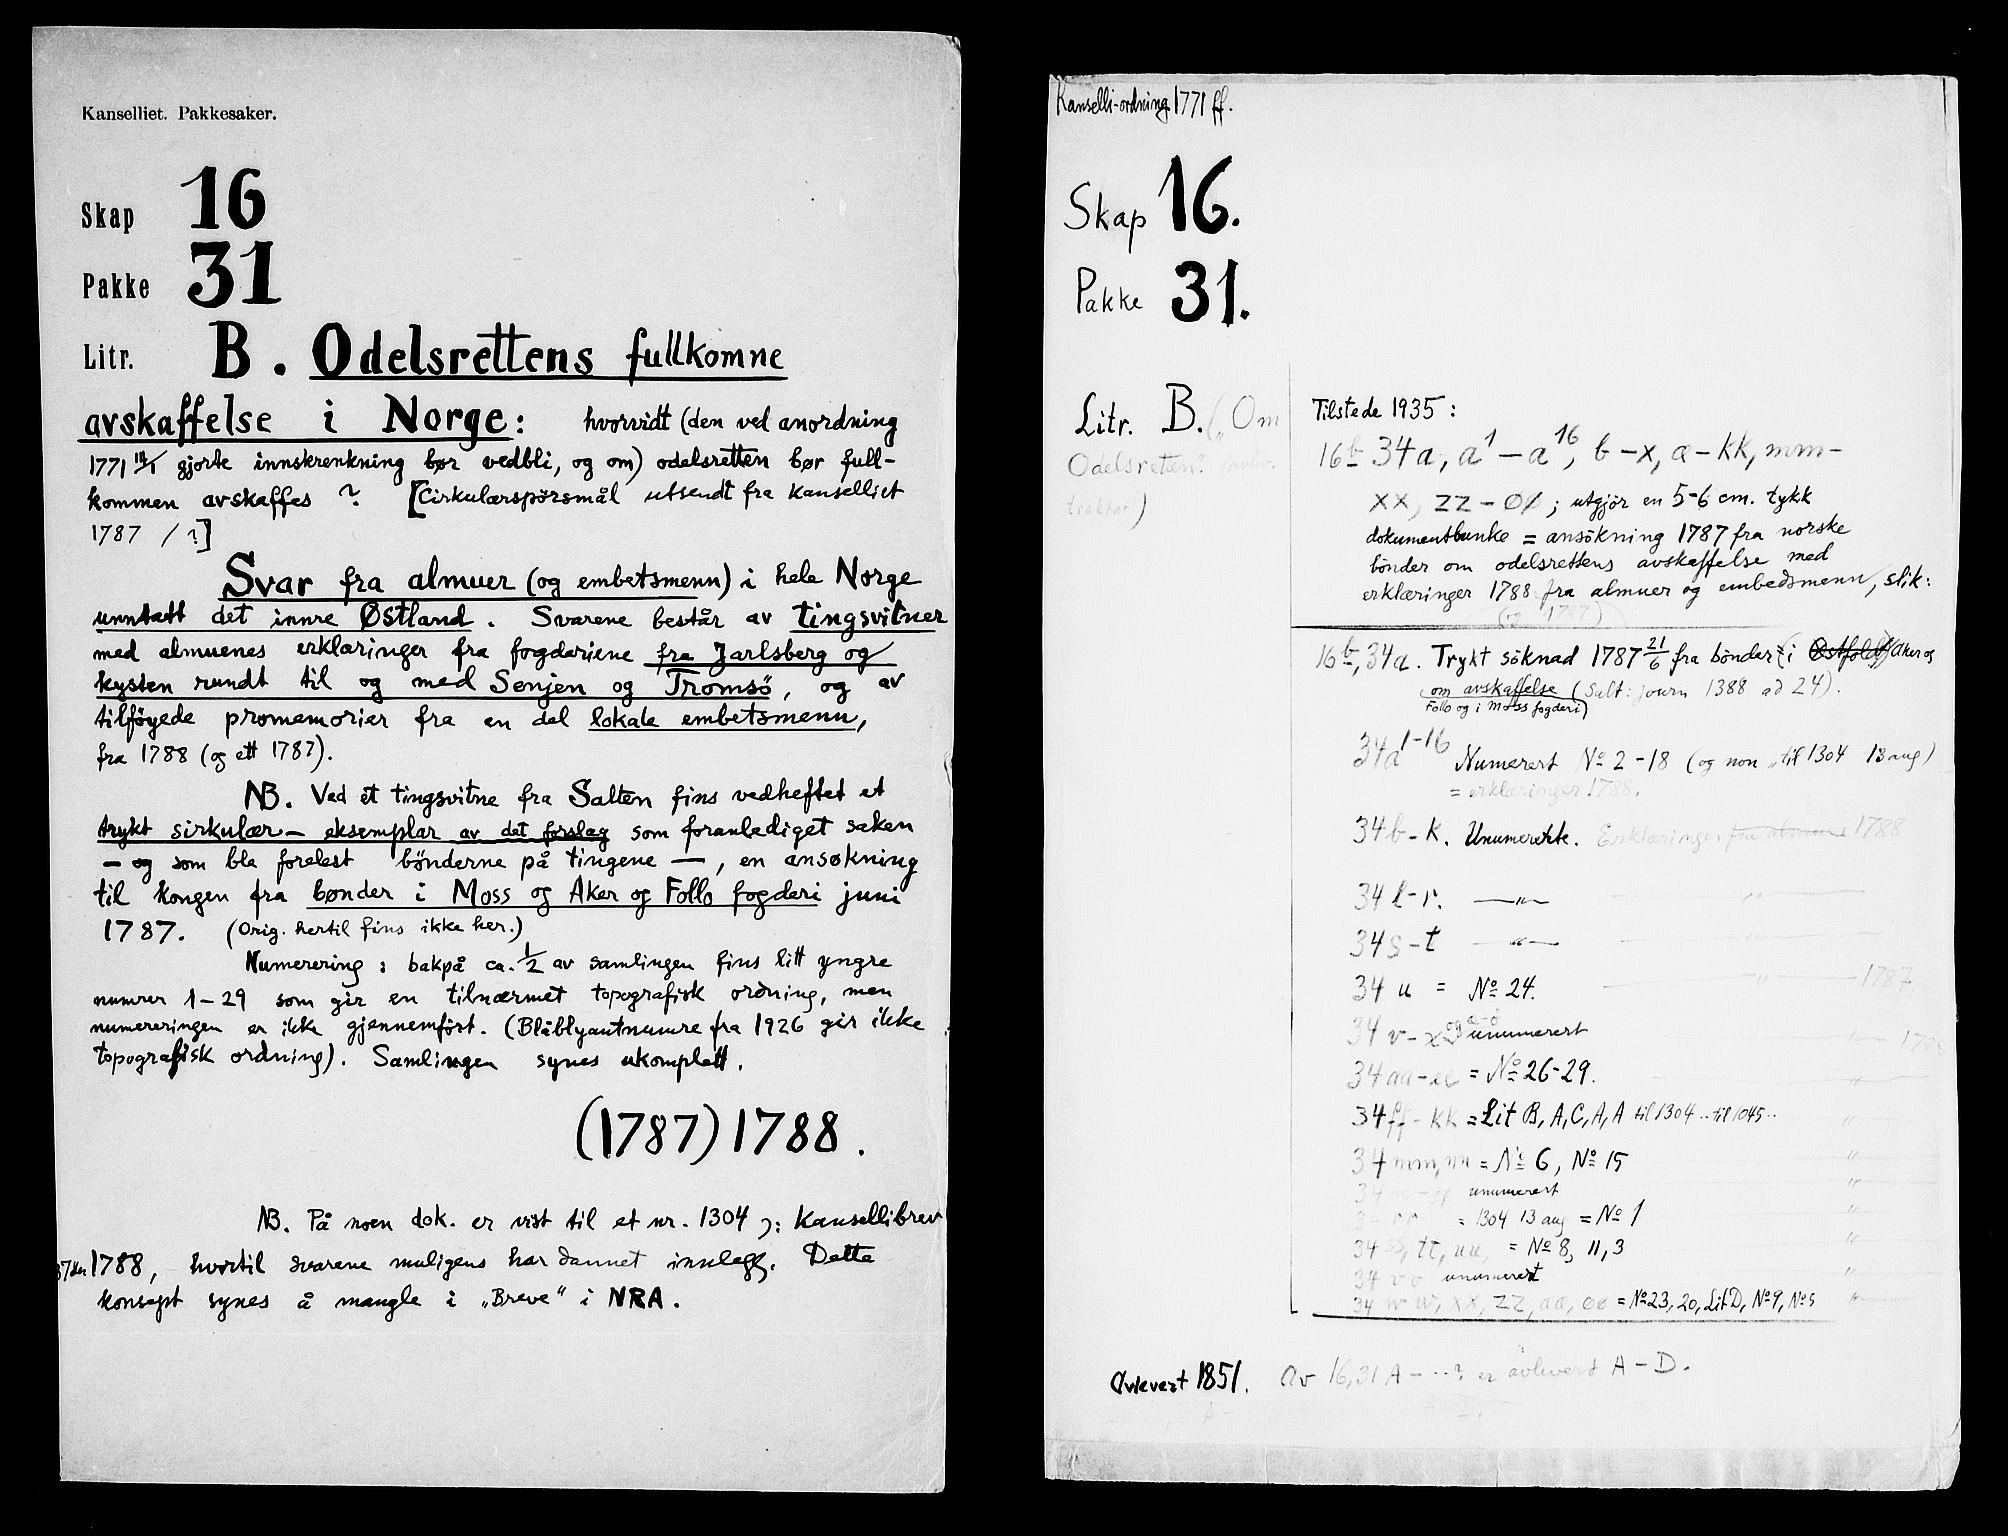 Kanselliet. Pakkesaker.
Skap 16
Pakke 31
Litr. B. Odelsrettens fullkomne
avskaffelse i Norge: hvorvidt (den ved anordning
1771 14/1 gjorte innskrenkning bør vedbli, og om) odelsretten bør full-
kommen avskaffes ? [Cirkulærspörsmål utsendt fra kanselliet
1787 / ?]
Svar fra almuer (og embetsmenn) i hele Norge
unntatt det innre Østland. Svarene består av tingsvitner
med almuenes erklæringer fra fogderiene fra Jarlsberg og
kysten rundt til og med Senjen og Tromsö, og av
tilföyede promemorier fra en del lokale embetsmenn,
fra 1788 (og ett 1787).
NB. Ved et tingsvitne fra Salten fins vedheftet et
trykt sirkulær- eksemplar av det forslag som foranlediget saken
— og som ble forelest bönderne på tingene —, en ansøkning
til kongen fra bønder i Moss og Aker og Follo fogderi juni
1787. (Orig. hertil fins ikke her.)
Numerering : bakpå ca. 1/2 av samlingen fins litt yngre
numrer 1-29 som gir en tilnærmet topografisk ordning, men
numereringen er ikke gjennemfört. (Blåblyantnumre fra 1926 gir ikke
topografisk ordning). Samlingen synes ukomplett.
(1787) 1788.
NB. På noen dok. er vist til et nr. 1304 ɔ: Kansellibrev
1788, hvortil svarene muligens har dannet innlegg. Dette
konsept synes å mangle i „Breve“ i NRA.
Kanselli-ordning 1771 ff.
Skap 16.
Pakke 31.
Litr. B. („Om
Odelsretten“.
Tilstede 1935 :
16b 34a, a1 – a16, b – x, æ – kk, mm –
xx, zz – øø ; utgjör en 5-6 cm. tykk
dokumentbunke = ansökning 1787 fra norske
bönder om odelsrettens avskaffelse med
erklæringer 1788 fra almuer og embedsmenn, slik:
(og 1787)
16b, 34a. Trykt söknad 1787 21/6 fra bönder (i Østfold) Aker og
om avskaffelse (Sult: journ 1388 ad 24).
Follo og i Moss fogderi)
34a 1-16 Numerert No 2-18 (og non „til 1304 13 aug)
= erklæringer 1788.
34b – k. Unumererte. Erklæringer fra almuens 1788
34 l – r. —〃—
34 s – t —〃—
34 u = No 24. 〃 1787
34 v – x og æ-ö unummerert
34 aa – ee = No 26-29. 〃
34 ff – kk = Lit B, A, C, A, A til 1304 .. til 1045.. 〃
34 mm, nn = No 6, No 15 〃
unumerert 〃
34 rr = 1304 13 aug = No 1 〃
34 ss, tt, uu, = No 8, 11, 3 〃
34 vv unumerert 〃
34 ww, xx, zz, ææ, øø = No 23, 20, Lit D, No 9, No 5 〃
Avlevert 1851. Av 16, 31 A – ...? er avlevert A – D.